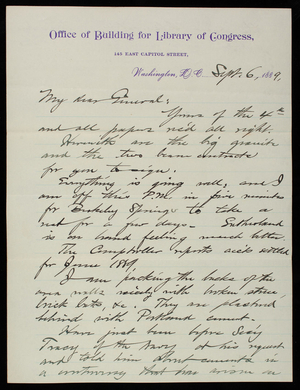 Office of Building for Library of Congress,
145 EAST CAPITOL STREET,
Washington, D.C. Sept. 6, 1889.
My dear General:
Yours of the 4th
and all papers rec'd all right.
Herewith are the big granite
and the two beam contracts
for you to sign.
Everything is going well, and I
am off this P.M. in five minutes
for Berkeley Springs to take a
rest for a few days. Sutherland
is on hand feeling much better.
The Comptroller reports acts settled
for June 1889.
I am packing the backs of the
area walls nicely with broken stone,
brick bats, &c. They are plastered
behind with Portland cement.
Have just been before Secy
Tracy of the Navy at his request
and told him about cements in
a controversy that has arisen in